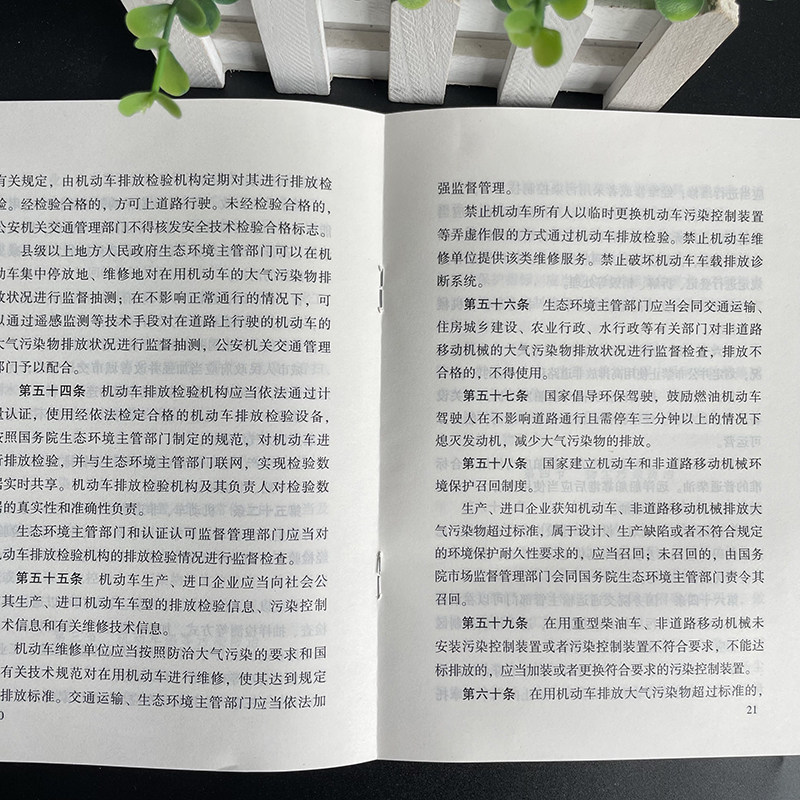 有关规定，由机动车排放检验机构定期对其进行排放检
验。经检验合格的，方可上道路行驶。未经检验合格的，
公安机关交通管理部门不得核发安全技术检验合格标志。
县级以上地方人民政府生态环境主管部门可以在机
动车集中停放地、维修地对在用机动车的大气污染物排
放状况进行监督抽测；在不影响正常通行的情况下，可
以通过遥感监测等技术手段对在道路上行驶的机动车的
大气污染物排放状况进行监督抽测，公安机关交通管理
部门予以配合。
第五十四条 机动车排放检验机构应当依法通过计
量认证，使用经依法检定合格的机动车排放检验设备，
按照国务院生态环境主管部门制定的规范，对机动车进
行排放检验，并与生态环境主管部门联网，实现检验数
据实时共享。机动车排放检验机构及其负责人对检验数
据的真实性和准确性负责。
生态环境主管部门和认证认可监督管理部门应当对
机动车排放检验机构的排放检验情况进行监督检查。
第五十五条 机动车生产、进口企业应当向社会公
其生产、进口机动车车型的排放检验信息、污染控制
技术信息和有关维修技术信息。
机动车维修单位应当按照防治大气污染的要求和国
有关技术规范对在用机动车进行维修，使其达到规定
排放标准。交通运输、生态环境主管部门应当依法加
0
强监督管理。
禁止机动车所有人以临时更换机动车污染控制装置
等弄虚作假的方式通过机动车排放检验。禁止机动车维
修单位提供该类维修服务。禁止破坏机动车车载排放诊
断系统。
第五十六条 生态环境主管部门应当会同交通运输、
住房城乡建设、农业行政、水行政等有关部门对非道路
移动机械的大气污染物排放状况进行监督检查，排放不
合格的，不得使用。
第五十七条 国家倡导环保驾驶，鼓励燃油机动车
驾驶人在不影响道路通行且需停车三分钟以上的情况下
熄灭发动机，减少大气污染物的排放。
第五十八条 国家建立机动车和非道路移动机械环
境保护召回制度。
生产、进口企业获知机动车、非道路移动机械排放大
气污染物超过标准，属于设计、生产缺陷或者不符合规定
的环境保护耐久性要求的，应当召回；未召回的，由国务
院市场监督管理部门会同国务院生态环境主管部门责令其
召回。
第五十九条 在用重型柴油车、非道路移动机械未
安装污染控制装置或者污染控制装置不符合要求，不能达
标排放的，应当加装或者更换符合要求的污染控制装置。
第六十条 在用机动车排放大气污染物超过标准的，
21